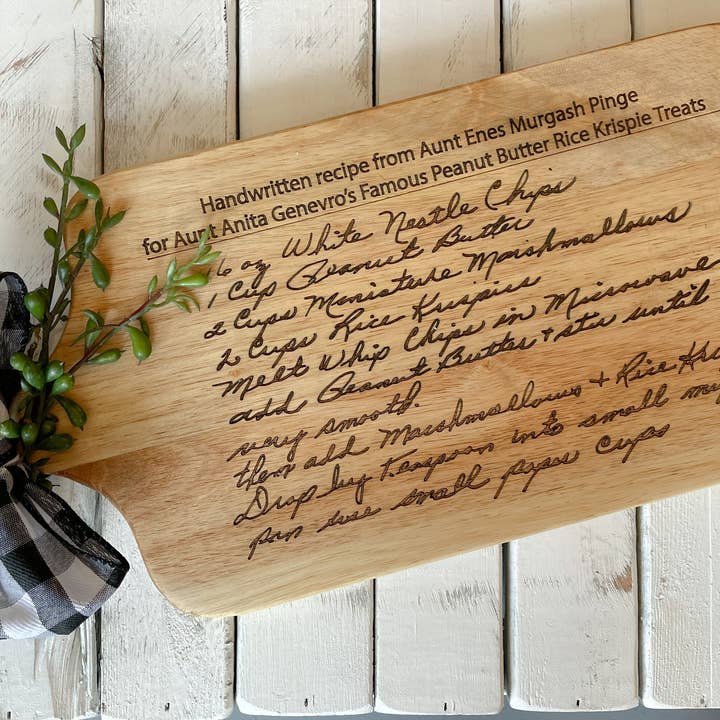 Handwritten recipe from Aunt Enes Murgash Pinge
for Aunt Anita Genevro's Famous Peanut Butter Rice Krispie Treats
6 oz White Nestle Chips
1 Cup Peanut Butter
2 Cups Miniature Marshmallows
2 Cups Rice Krispies
Melt Whip Chips in Microwave
add Peanut Butter + stir until
very smooth.
then add Marshmallows + Rice
Drop by Teaspoon into small
pan use small paper cups